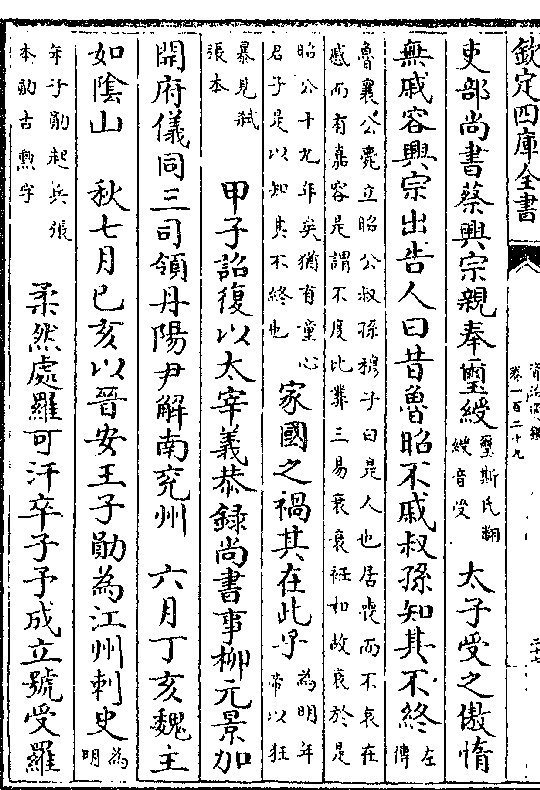 欽定四庫全書
資治通鑑
卷一百二十九
吏部尚書蔡興宗親奉璽綬璽斯氏翻綬音受太子受之傲惰
無戚容興宗出告人曰昔魯昭不戚叔孫知其不終左傳
魯襄公薨立昭公叔孫穆子曰是人也居喪而不哀在
慼而有嘉容是謂不度比葬三易衰衰衽如故衰於是
昭公十九年矣猶有童心
君子是以知其不終也
家國之禍其在此乎為明年帝以狂
暴見弒
張本
甲子詔復以太宰義恭錄尚書事柳元景加
開府儀同三司領丹陽尹解南兖州 六月丁亥魏主
如陰山 秋七月已亥以晉安王子勛為江州刺史為明
年子勛起兵張
本勛古勲字
柔然處羅可汗卒子予成立號受羅